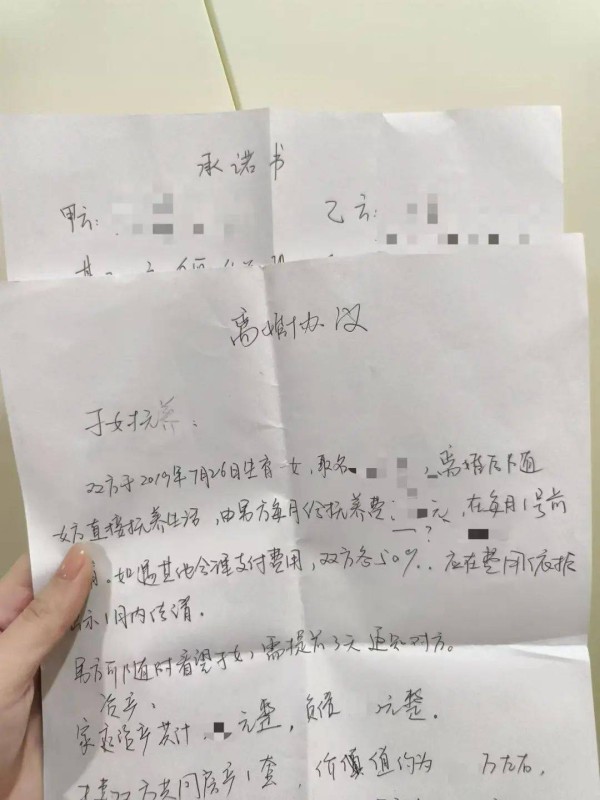 承诺书
甲方: 乙方:
离婚协议
子女抚养:
双方于2019年7月26日生育一女,取名 ,离婚后随
女方直接抚养生活,由男方每月给抚养费: 元,在每月1号前
清.如遇其他合理支付费用,双方各50%..应在费用依据
示1月内结清.
男方可随时看望子女,需提前3天通知对方。
资产:
家庭资产共计 元整,负债 元整.
双方共同房产1套, 价值约为 万左右,